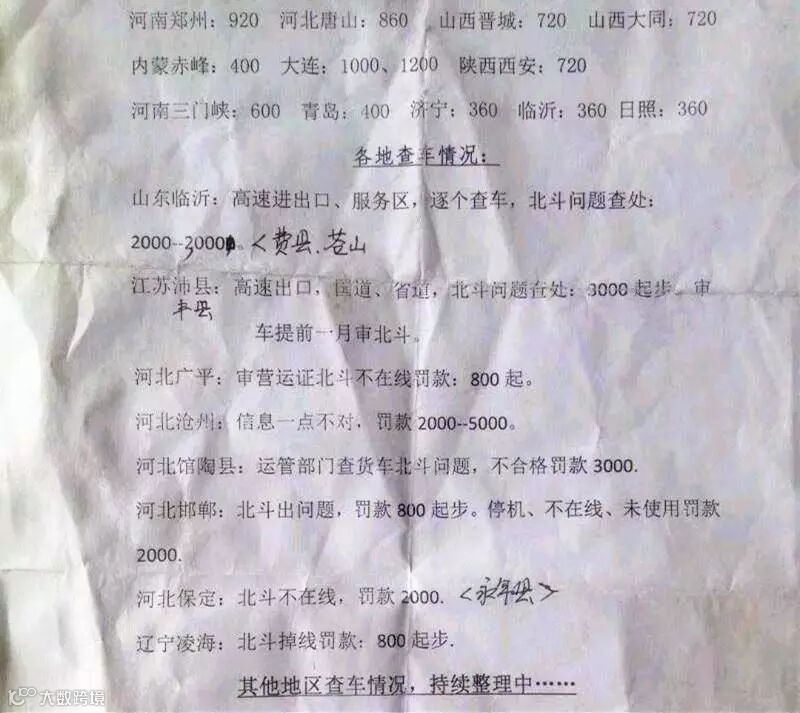 河南郑州：920 河北唐山：860 山西晋城：720 山西大同：720
内蒙赤峰：400 大连：1000、1200 陕西西安：720
河南三门峡：600 青岛：400 济宁：360 临沂：360 日照：360
各地查车情况：
山东临沂：高速进出口、服务区，逐个查车，北斗问题查处：
2000--3000。<费县、苍山
江苏沛县：高速出口，国道、省道，北斗问题查处：3000 起步。审
丰县
车提前一月审北斗。
河北广平：审营运证北斗不在线罚款：800 起。
河北沧州：信息一点不对，罚款 2000--5000。
河北馆陶县：运管部门查货车北斗问题，不合格罚款 3000.
河北邯郸：北斗出问题，罚款 800 起步。停机、不在线、未使用罚款
2000.
河北保定：北斗不在线，罚款 2000.<永年县>
辽宁凌海：北斗掉线罚款：800 起步.
其他地区查车情况，持续整理中……
大数跨境